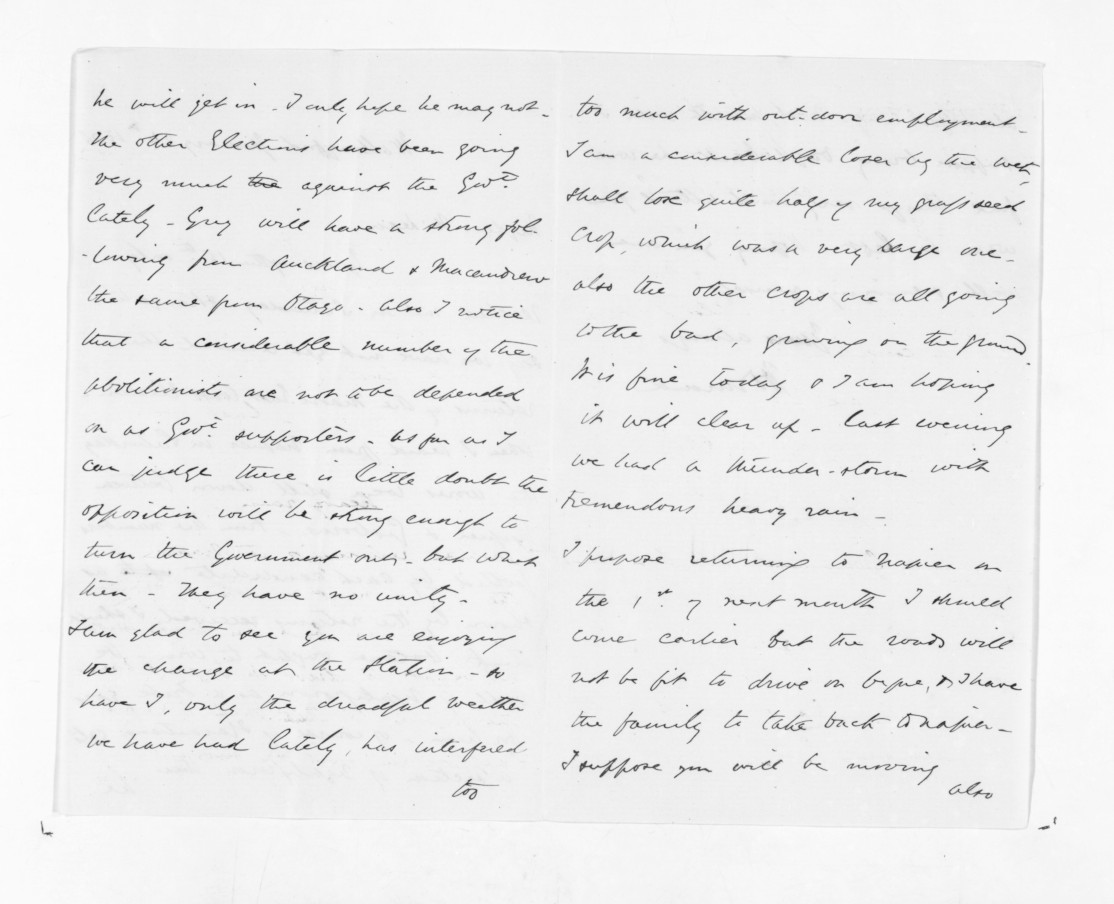 he will get in - I only hope he may not -
The other Elections have been going
very much the against the Govt.
lately - Grey will have a strong fol-
-lowing from Auckland & Macandrew
the same from Otago - Also I notice
that a considerable number of the
abolitionists are not to be depended
on as Govt supporters - As far as I
can judge there is little doubt the
opposition will be strong enough to
turn the Government out, - but what
then - They have no unity -
I am glad to see you are enjoying
the change at the Station - so
have I, only the dreadful weather
we have had lately, has interfered
too
too much with out-door employment -
I am a considerable loser by the wet,
shall lose quite half of my grass seed
crop, which was a very large one -
also the other crops are all going
to the bad, growing on the ground.
It is fine today & I am hoping
it will clear up - Last evening
we had a thunder-storm with
tremendous heavy rain -
I propose returning to Napier on
the 1st. of next month I should
come earlier but the roads will
not be fit to drive on before, & I have
the family to take back to Napier -
I suppose you will be moving
also